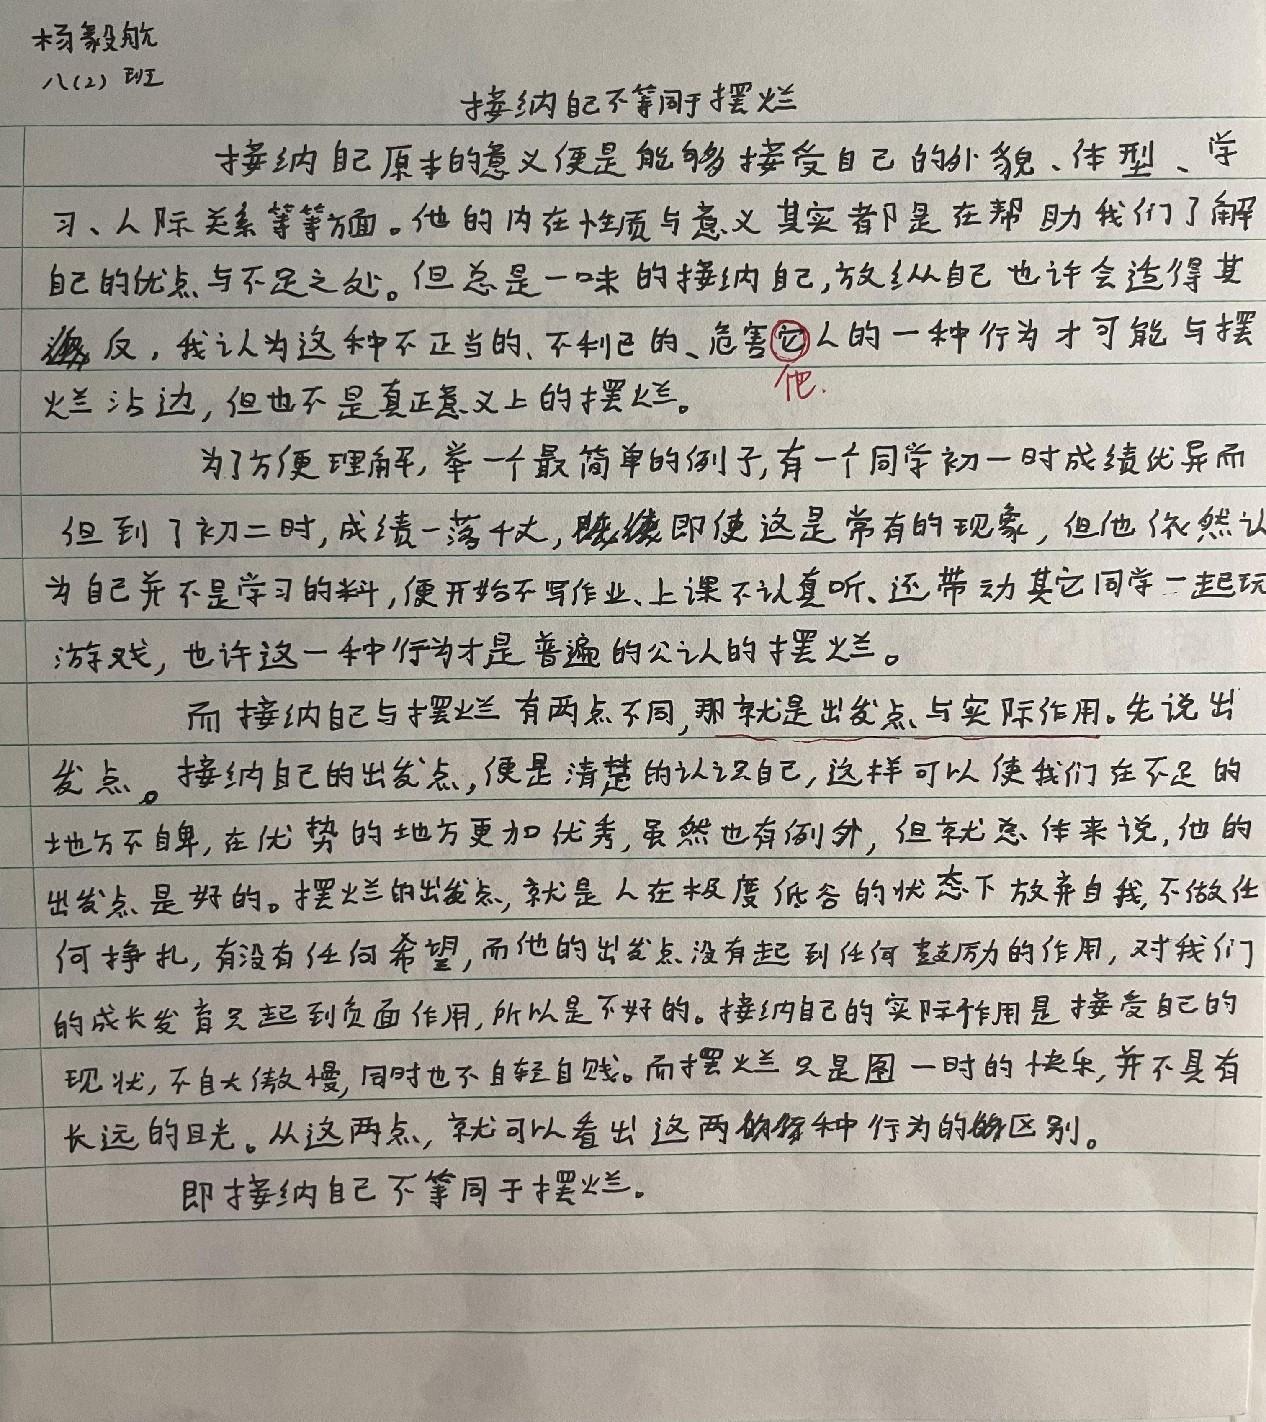 杨毅航
八(2)班
接纳自己不等同于摆烂
接纳自己原本的意义便是能够接受自己的外貌、体型、学
习、人际关系等等方面。他的内在性质与意义其实都是在帮助我们了解
自己的优点与不足之处。但总是一味的接纳自己,放纵自己也许会适得其
反,我认为这种不正当的、不利己的、危害它人的一种行为才可能与摆
他.
烂沾边,但也不是真正意义上的摆烂。
为了方便理解,举一个最简单的例子,有一个同学初一时成绩优异而
但到了初二时,成绩一落千丈,即使这是常有的现象,但他依然认
为自己并不是学习的料,便开始不写作业、上课不认真听、还带动其它同学一起玩
游戏,也许这一种行为才是普遍的公认的摆烂。
而接纳自己与摆烂有两点不同,那就是出发点与实际作用。先说出
发点。接纳自己的出发点,便是清楚的认识自己,这样可以使我们在不足的
地方不自卑,在优势的地方更加优秀,虽然也有例外,但就总体来说,他的
出发点是好的。摆烂的出发点,就是人在极度低谷的状态下放弃自我,不做任
何挣扎,有没有任何希望,而他的出发点没有起到任何鼓励的作用,对我们
的成长发育只起到负面作用,所以是不好的。接纳自己的实际作用是接受自己的
现状,不自大傲慢,同时也不自轻自贱。而摆烂只是图一时的快乐,并不具有
长远的目光。从这两点,就可以看出这两种行为的区别。
即接纳自己不等同于摆烂。